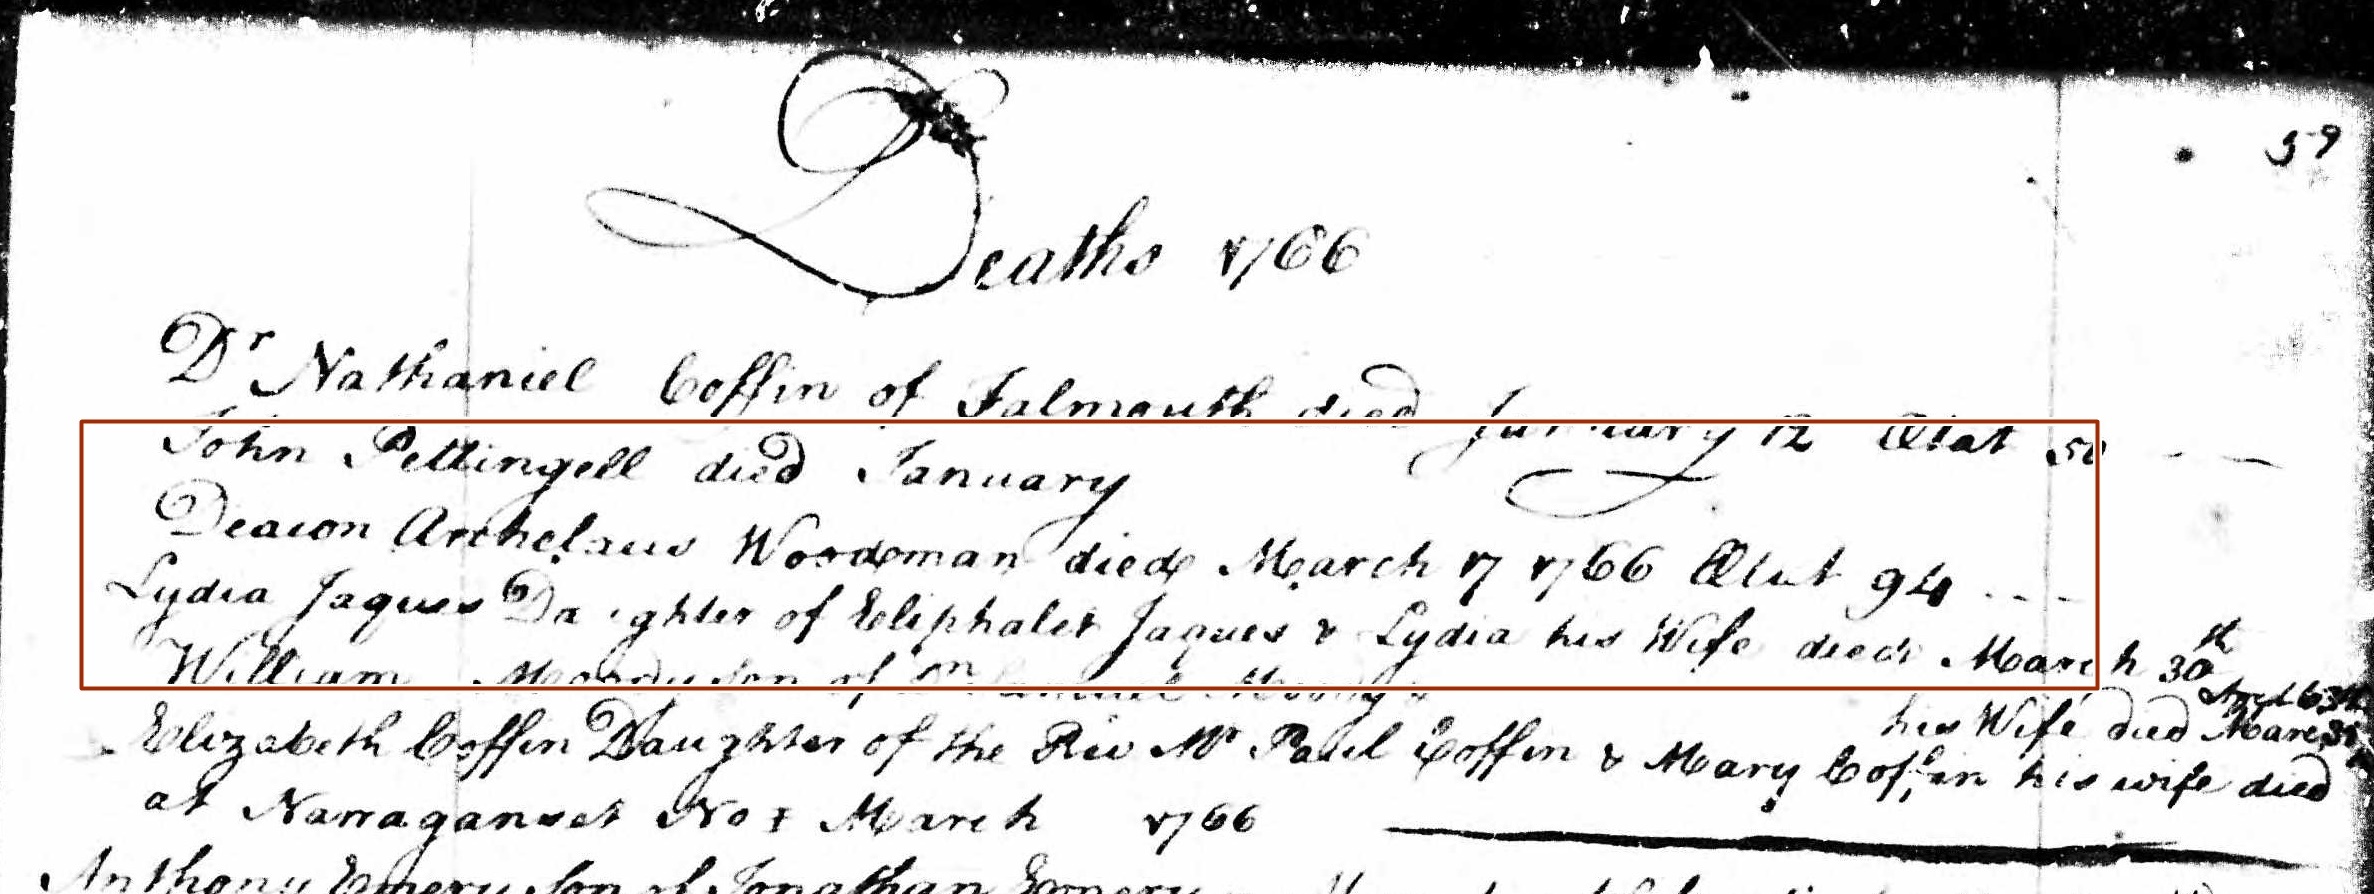 59
Deaths 1766
Dr Nathaniel Coffin of Falmouth died January 12 Ætat 50
John Pettingell died January
Deacon Archelaus Woodman died March 17 1766 Ætat 94
Lydia Jaques Daughter of Eliphalet Jaques & Lydia his Wife died March 30th
William Moody son of Dn Samuel Moody &
his Wife died March 31
Elizabeth Coffin Daughter of the Rev Mr Paul Coffin & Mary Coffin his wife died
at Narraganset No 1 March 1766
Anthony Emery Son of Jonathan Emery